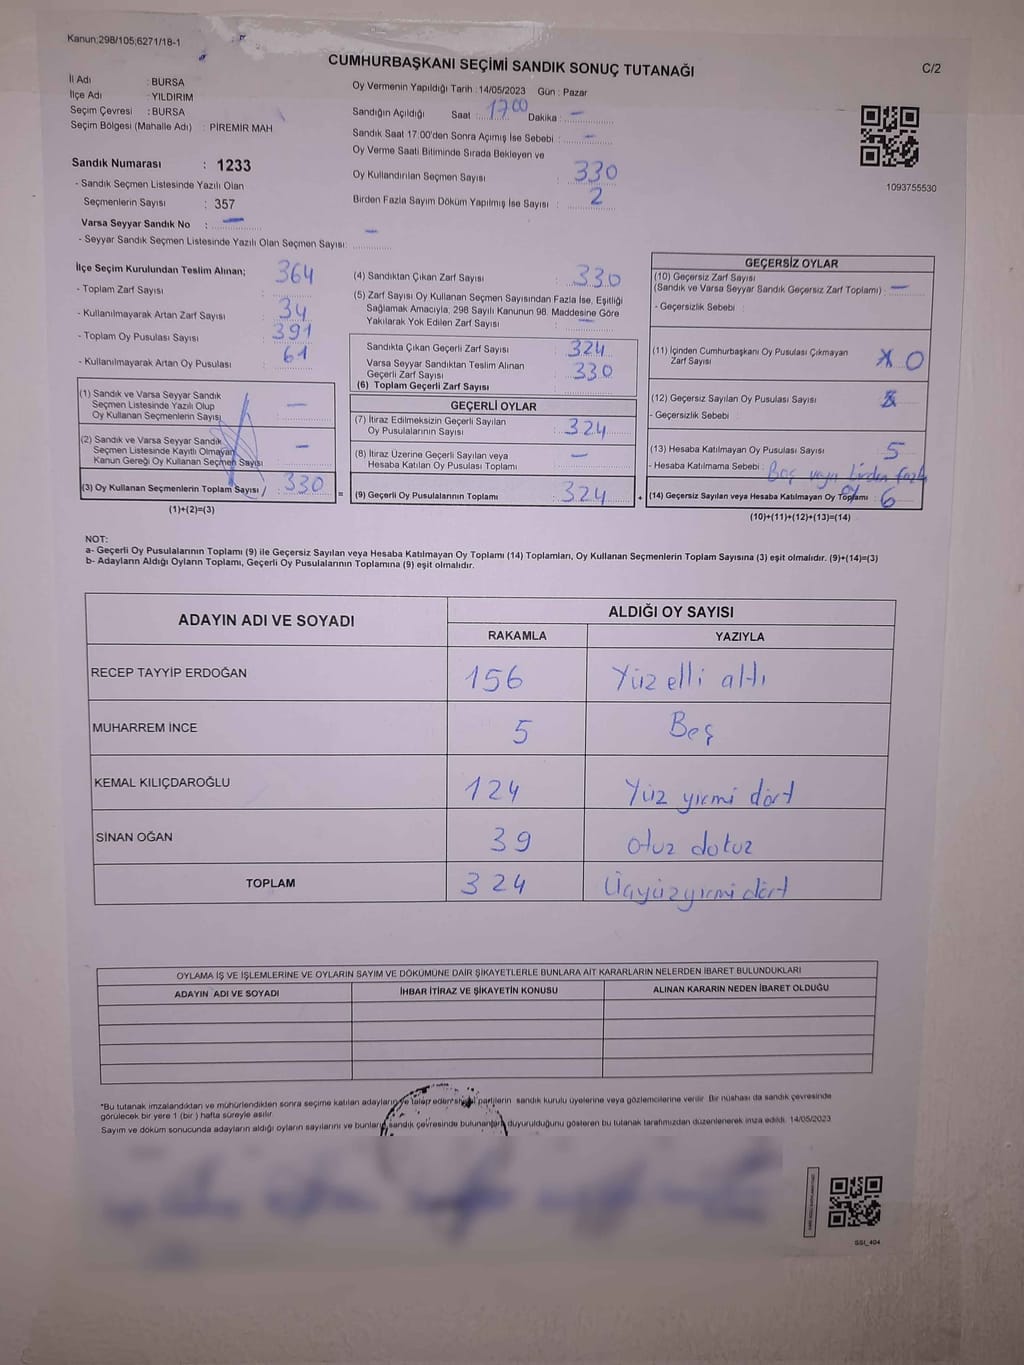 Kanun;298/105;6271/18-1
CUMHURBAŞKANI SEÇİMİ SANDIK SONUÇ TUTANAĞI
C/2
İl Adı : BURSA
İlçe Adı : YILDIRIM
Seçim Çevresi : BURSA
Seçim Bölgesi (Mahalle Adı) : PİREMİR MAH
Sandık Numarası : 1233
- Sandık Seçmen Listesinde Yazılı Olan
Seçmenlerin Sayısı : 357
Varsa Seyyar Sandık No : —
- Seyyar Sandık Seçmen Listesinde Yazılı Olan Seçmen Sayısı: —
Oy Vermenin Yapıldığı Tarih : 14/05/2023 Gün : Pazar
Sandığın Açıldığı Saat 17.00 Dakika : —
Sandık Saat 17.00'den Sonra Açımış İse Sebebi : —
Oy Verme Saati Bitiminde Sırada Bekleyen ve
Oy Kullandırılan Seçmen Sayısı : 330
Birden Fazla Sayım Döküm Yapılmış İse Sayısı : 2
1093755530
İlçe Seçim Kurulundan Teslim Alınan; 364
- Toplam Zarf Sayısı
- Kullanılmayarak Artan Zarf Sayısı : 34
- Toplam Oy Pusulası Sayısı : 391
- Kullanılmayarak Artan Oy Pusulası : 61
(1) Sandık ve Varsa Seyyar Sandık
Seçmen Listesinde Yazılı Olup
Oy Kullanan Seçmenlerin Sayısı —
(2) Sandık ve Varsa Seyyar Sandık
Seçmen Listesinde Kayıtlı Olmayan
Kanun Gereği Oy Kullanan Seçmen Sayısı —
(3) Oy Kullanan Seçmenlerin Toplam Sayısı 330
(1)+(2)=(3)
=
(4) Sandıktan Çıkan Zarf Sayısı : 330
(5) Zarf Sayısı Oy Kullanan Seçmen Sayısından Fazla İse, Eşitliği
Sağlamak Amacıyla, 298 Sayılı Kanunun 98. Maddesine Göre
Yakılarak Yok Edilen Zarf Sayısı : —
Sandıkta Çıkan Geçerli Zarf Sayısı : 324
Varsa Seyyar Sandıktan Teslim Alınan
Geçerli Zarf Sayısı : 330
(6) Toplam Geçerli Zarf Sayısı
GEÇERLİ OYLAR
(7) İtiraz Edilmeksizin Geçerli Sayılan
Oy Pusulalarının Sayısı : 324
(8) İtiraz Üzerine Geçerli Sayılan veya
Hesaba Katılan Oy Pusulası Toplamı : —
(9) Geçerli Oy Pusulalarının Toplamı : 324
+
GEÇERSİZ OYLAR
(10) Geçersiz Zarf Sayısı
(Sandık ve Varsa Seyyar Sandık Geçersiz Zarf Toplamı) : —
- Geçersizlik Sebebi :
(11) İçinden Cumhurbaşkanı Oy Pusulası Çıkmayan
Zarf Sayısı 0
(12) Geçersiz Sayılan Oy Pusulası Sayısı :
- Geçersizlik Sebebi :
(13) Hesaba Katılmayan Oy Pusulası Sayısı : 5
- Hesaba Katılmama Sebebi : Boş veya birden fazla
oy
(14) Geçersiz Sayılan veya Hesaba Katılmayan Oy Toplamı : 6
(10)+(11)+(12)+(13)=(14)
NOT:
a- Geçerli Oy Pusulalarının Toplamı (9) ile Geçersiz Sayılan veya Hesaba Katılmayan Oy Toplamı (14) Toplamları, Oy Kullanan Seçmenlerin Toplam Sayısına (3) eşit olmalıdır. (9)+(14)=(3)
b- Adayların Aldığı Oyların Toplamı, Geçerli Oy Pusulalarının Toplamına (9) eşit olmalıdır.
ADAYIN ADI VE SOYADI
ALDIĞI OY SAYISI
RAKAMLA YAZIYLA
RECEP TAYYİP ERDOĞAN 156 Yüz elli altı
MUHARREM İNCE 5 Beş
KEMAL KILIÇDAROĞLU 124 Yüz yirmi dört
SİNAN OĞAN 39 otuz dokuz
TOPLAM 324 Üçyüzyirmi dört
OYLAMA İŞ VE İŞLEMLERİNE VE OYLARIN SAYIM VE DÖKÜMÜNE DAİR ŞİKAYETLERLE BUNLARA AİT KARARLARIN NELERDEN İBARET BULUNDUKLARI
ADAYIN ADI VE SOYADI İHBAR İTİRAZ VE ŞİKAYETİN KONUSU ALINAN KARARIN NEDEN İBARET OLDUĞU
*Bu tutanak imzalandıktan ve mühürlendikten sonra seçime katılan adayların ve talep eden siyasi partilerin sandık kurulu üyelerine veya gözlemcilerine verilir. Bir nüshası da sandık çevresinde
görülecek bir yere 1 (bir) hafta süreyle asılır.
Sayım ve döküm sonucunda adayların aldığı oyların sayılarını ve bunların sandık çevresinde bulunanlara duyurulduğunu gösteren bu tutanak tarafımızdan düzenlenerek imza edildi. 14/05/2023
SSI_404